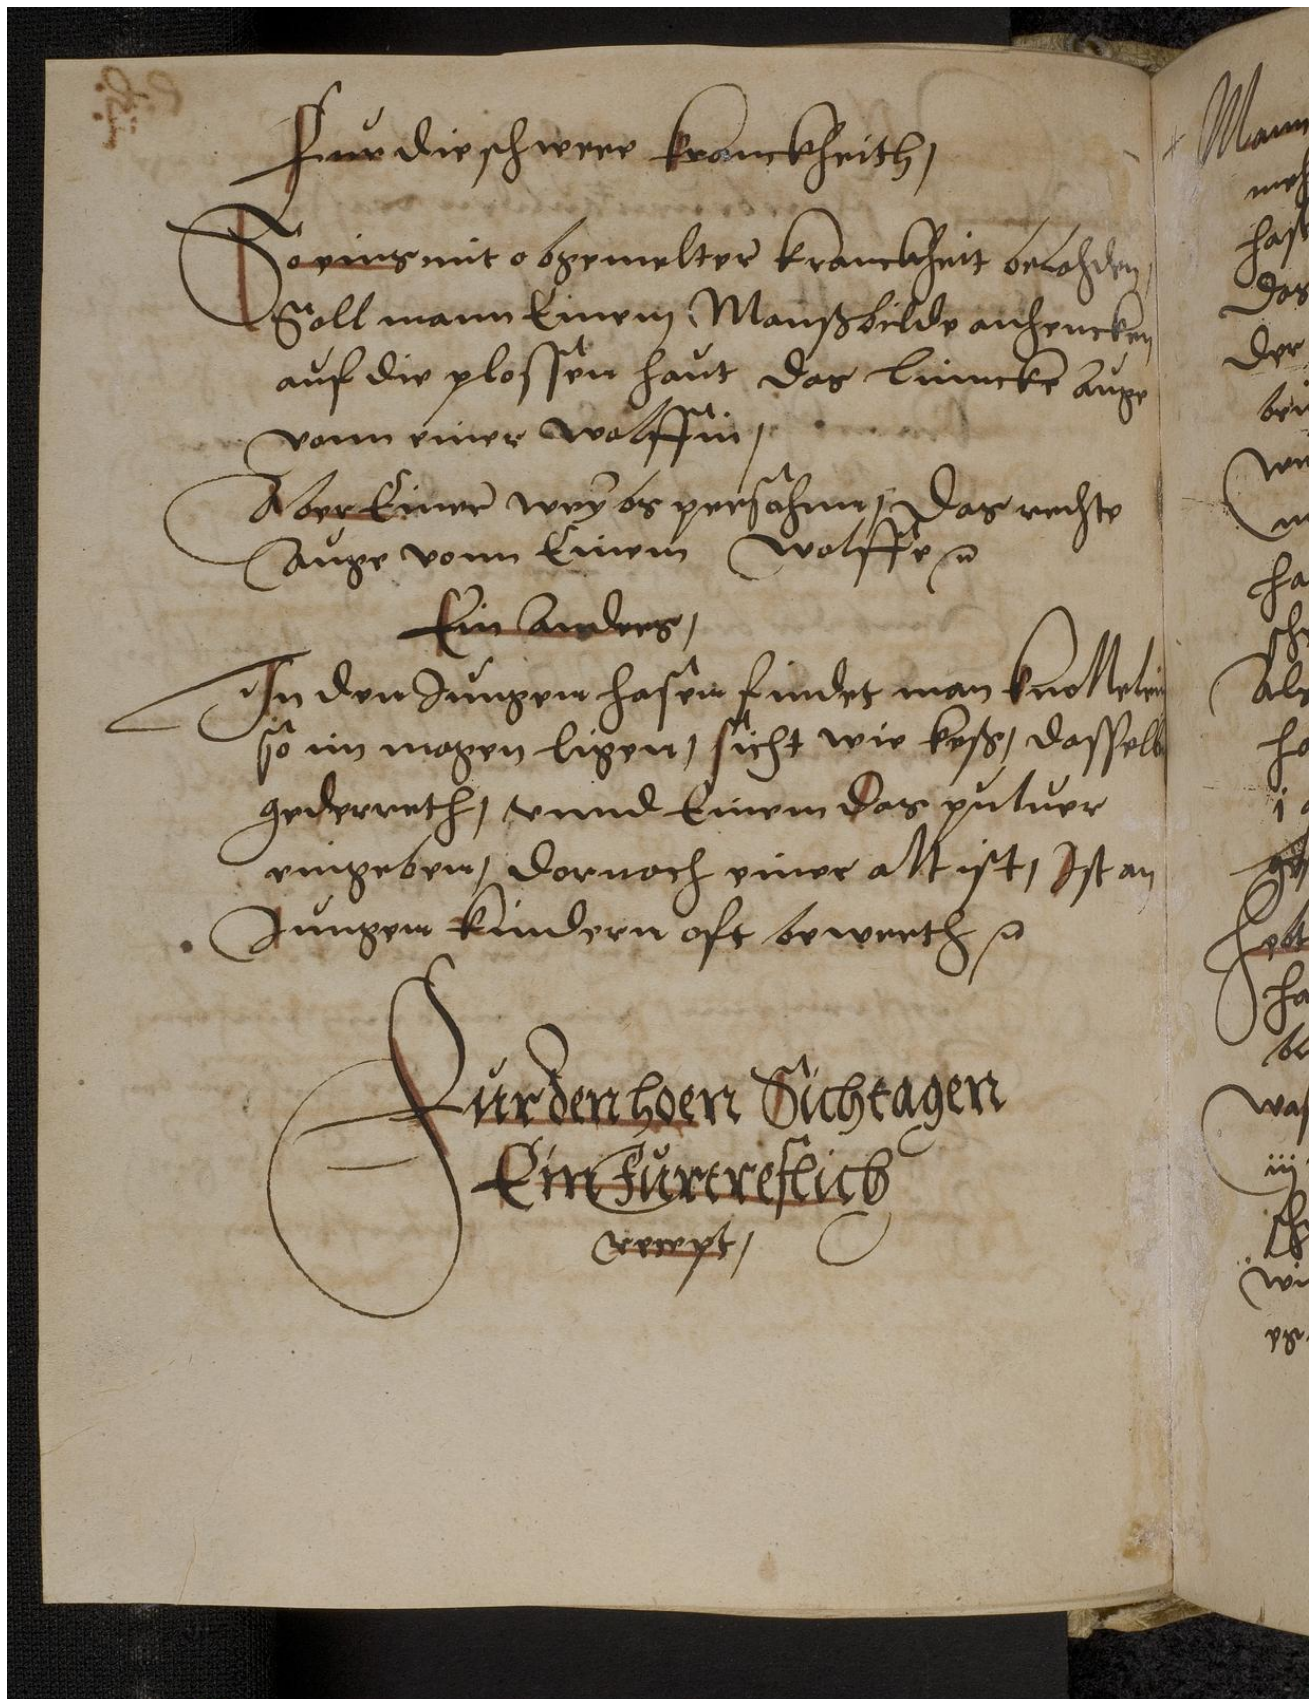 Fur die schwere kranckheith,
So eins mit obgemelter kranckheit beladen,
Soll mann Einem Manßbilde anhencken
auf die plossen haut das lincke auge
vonn einer wolffin,
Aber Einer weÿbs persohnn, Das rechte
auge vonn Einem Wolffe
Ein anders,
In den Jungen hasen findet man knollelein
so im magen ligen, sicht wie keß, dasselb
gederreth, vnnd Einem das puluer
eingeben, dornach einer alt ist, Ist an
Jungen kindern oft bewerth
Fur den hoen Sichtagen
Ein Furtreflich
recept,